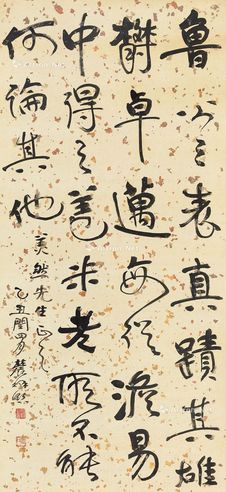 魯公之表真蹟其雄
欝卓邁每從澹易
中得之蓋米老所不能
何論其他
美然先生正之
乙丑閏四月